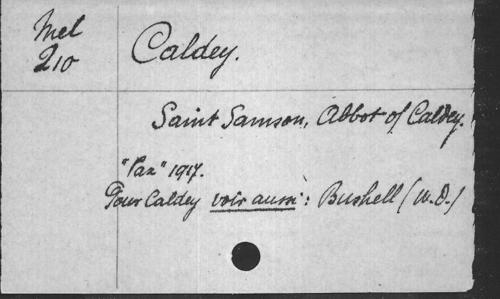 Mel
210
Caldey.
Saint Samson, Abbot of Caldey.
"Pax" 1917.
Pour Caldey voir aussi: Bushell (W.D.)